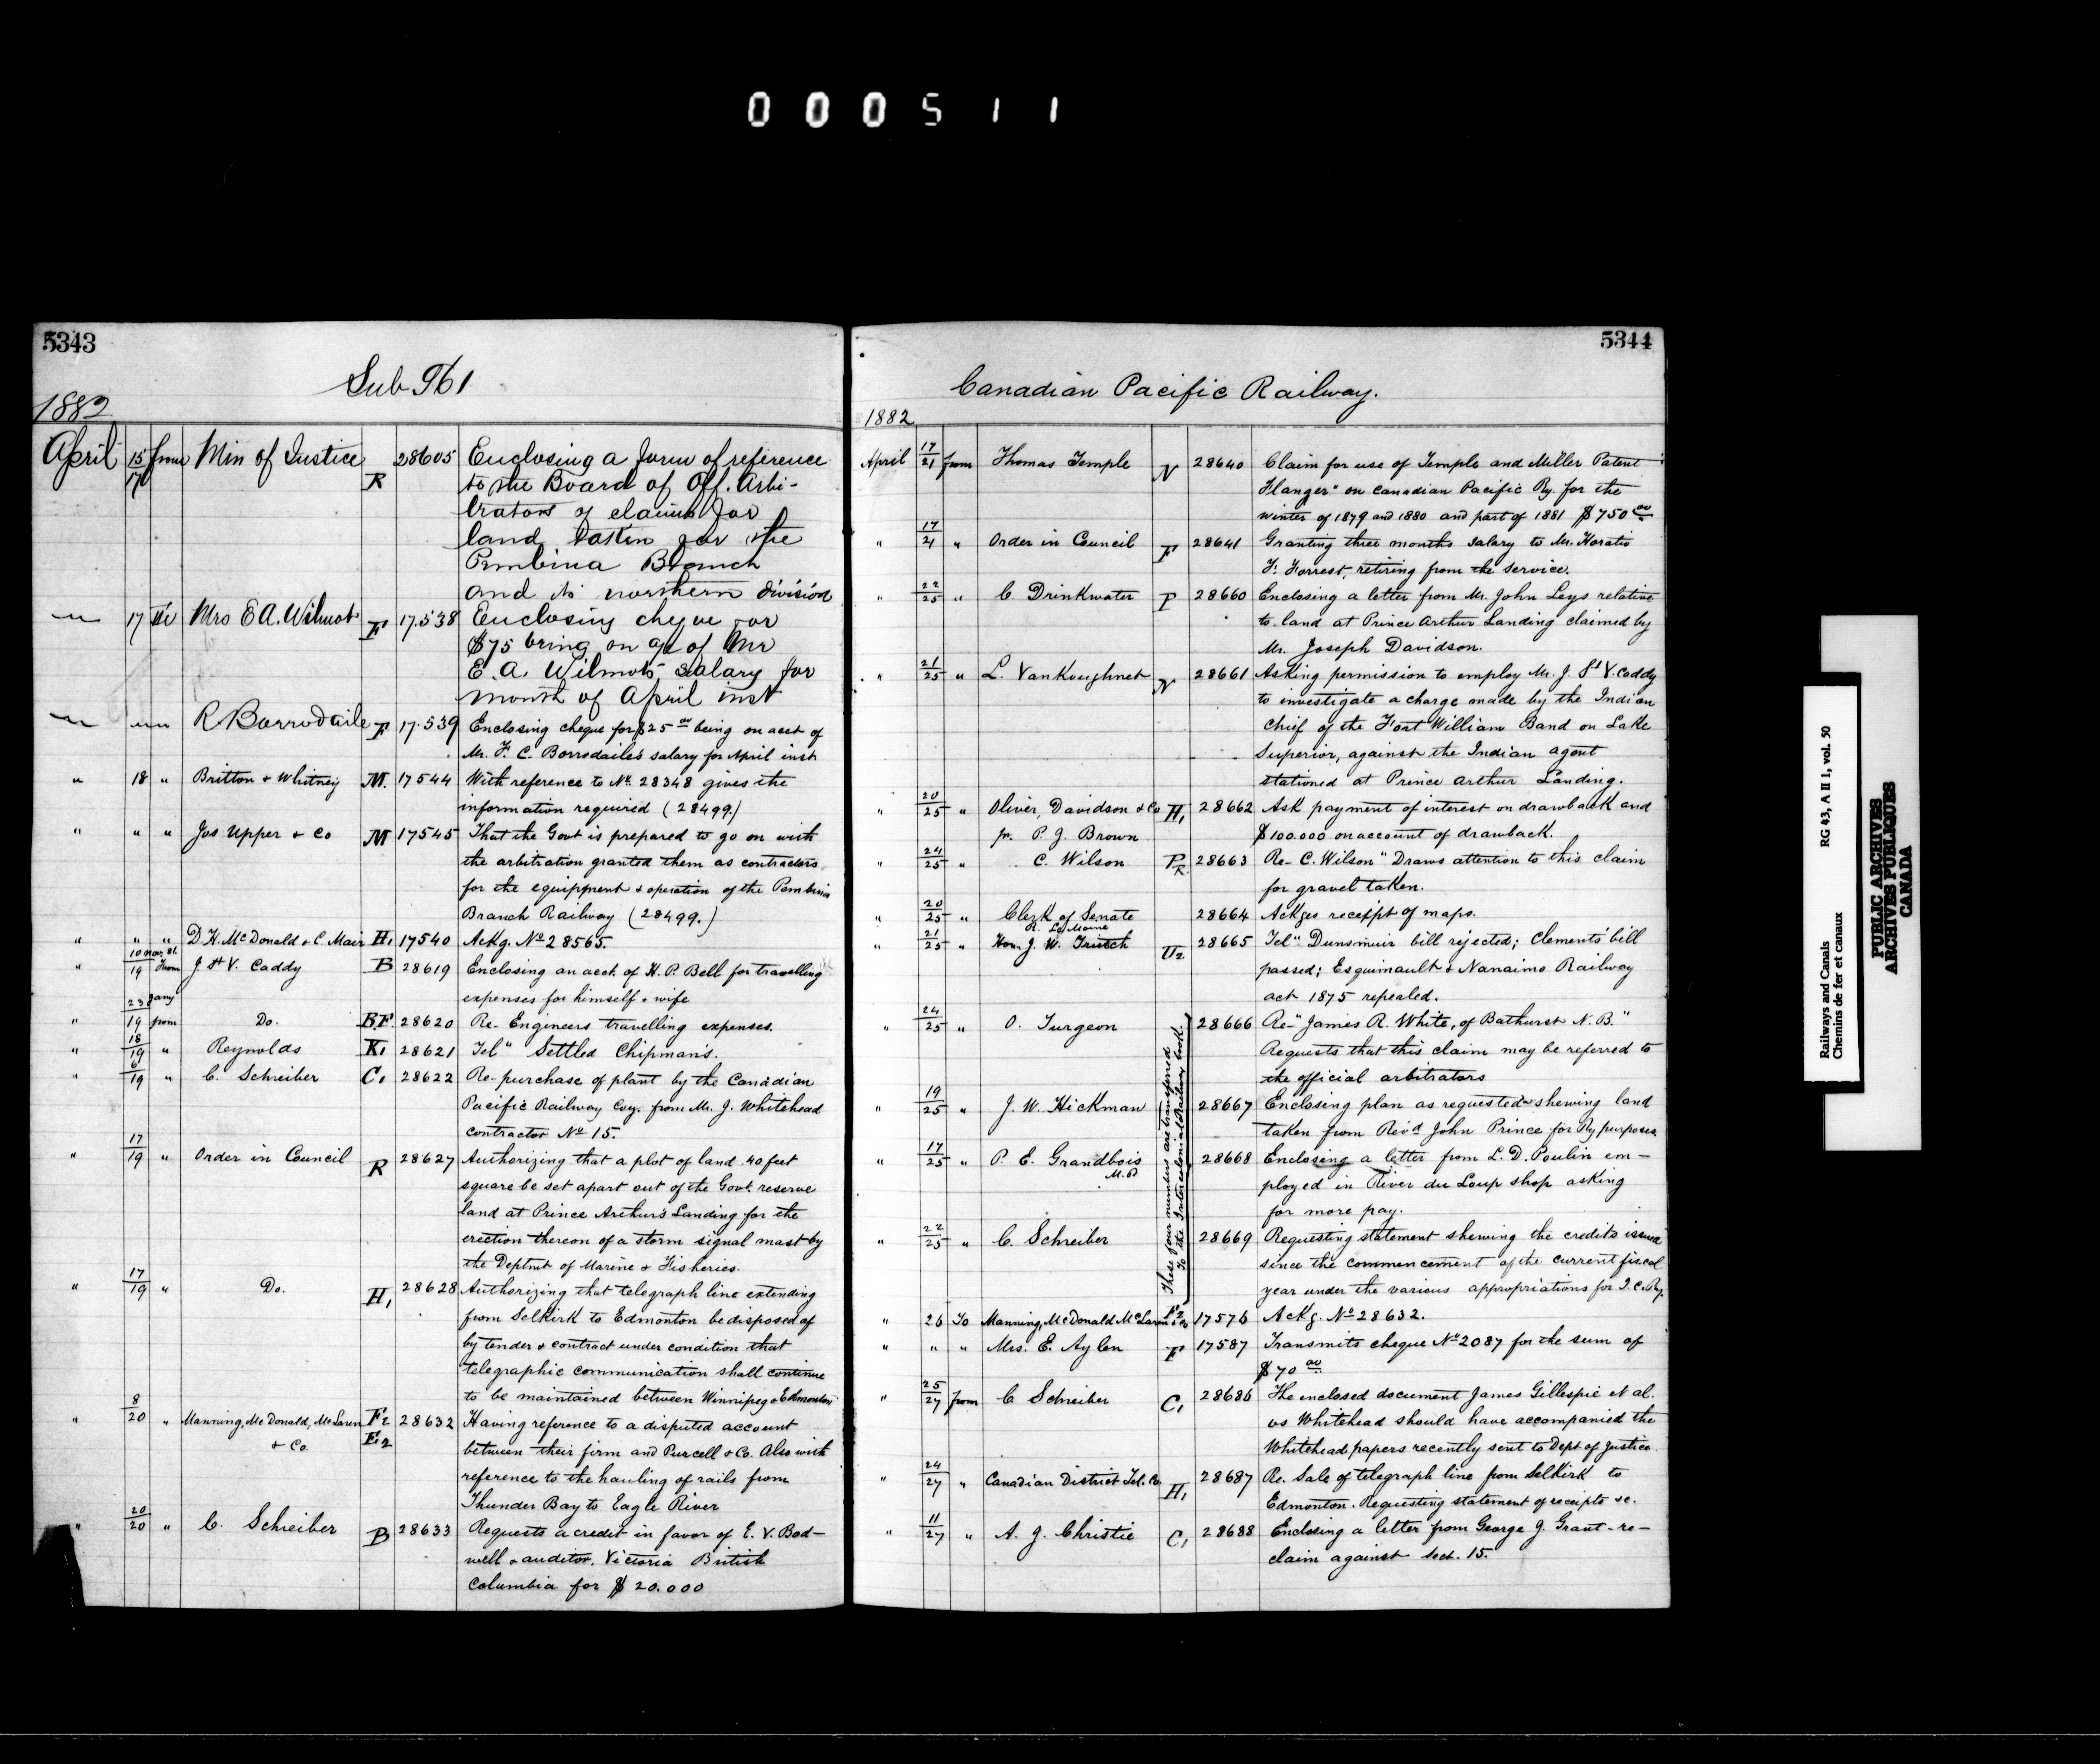 000511
5343
Sub 961
1882
April 15/17 from Min of Justice R 28605 Enclosing a form of reference
to the Board of Off. Arbi-
trators of claims for
land taken for the
Pembina Branch
and its northern division
" 17 To Mrs E A. Wilmot F 17.538 Enclosing cheque for
$75 being on a/c of Mr
E. A. Wilmots salary for
month of April inst
" " " R Borrodaile F 17.539 Enclosing cheque for $25 00 being on acct of
Mr. F. C. Borrodaile's salary for April inst
" 18 " Britton & Whitney M. 17544 With reference to No. 28348 gives the
information required (28499.)
" " " Jas Upper & Co M 17545 That the Govt is prepared to go on with
the arbitration granted them as contractors
for the equippment & operation of the Pembina
Branch Railway (28499.)
" " " D. H. McDonald & C. Mair H1 17540 Ackg. No 28565.
" 10 Nov. 81./19 From J. St V. Caddy B 28619 Enclosing an acct. of H. P. Bell for travelling
expenses for himself & wife
" 23 Jany/19 from Do. B.F 28620 Re- Engineers travelling expenses.
" 18/19 " Reynolds K1 28621 Tel" Settled Chipman's.
" 6/19 " C. Schreiber C1 28622 Re-purchase of plant by the Canadian
Pacific Railway Coy. from Mr. J. Whitehead
contractor No 15.
" 17/19 " Order in Council R 28627 Authorizing that a plot of land 40 feet
square be set apart out of the Govt. reserve
land at Prince Arthur's Landing for the
erection thereon of a storm signal mast by
the Deptmt of Marine & Fisheries.
" 17/19 " Do. H1 28628 Authorizing that telegraph line extending
from Selkirk to Edmonton be disposed of
by tender & contract under condition that
telegraphic communication shall continue
to be maintained between Winnipeg & Edmonton
" 8/20 " Manning, McDonald, McLaren F2 28632 Having reference to a disputed account
& Co. E2 between their firm and Purcell & Co. Also with
reference to the hauling of rails from
Thunder Bay to Eagle River
" 20/20 " C. Schreiber B 28633 Requests a credit in favor of E. V. Bod-
well & auditor, Victoria British
Columbia for $20.000
5344
Canadian Pacific Railway.
1882
April 17/21 from Thomas Temple N 28640 Claim for use of Temple and Miller Patent
Flanger" on Canadian Pacific Ry. for the
winter of 1879 and 1880 and part of 1881 $750 00
" 17/21 " Order in Council F 28641 Granting three months salary to Mr. Horatio
F. Forrest, retiring from the service.
" 22/25 " C. Drinkwater P 28660 Enclosing a letter from Mr. John Leys relative
to land at Prince Arthur Landing claimed by
Mr. Joseph Davidson.
" 21/25 " L. VanKoughnet N 28661 Asking permission to employ Mr. J. St V. Caddy
to investigate a charge made by the Indian
Chief of the Fort William Band on Lake
Superior, against the Indian agent
stationed at Prince Arthur Landing.
" 20/25 " Oliver, Davidson & Co H1 28662 Ask payment of interest on drawback and
pr. P. J. Brown $100.000 on account of drawback.
" 24/25 " C. Wilson P.R. 28663 Re- C. Wilson" Draws attention to this claim
for gravel taken.
" 20/25 " Clerk of Senate 28664 Ackges receippt of maps.
R. Le Moine
" 21/25 " Hon. J. W. Trutch U2 28665 Tel" Dunsmuir bill rejected; Clements' bill
passed; Esquimault & Nanaimo Railway
act 1875 repealed.
" 24/25 " O. Turgeon 28666 Re-"James R. White, of Bathurst N. B."
Requests that this claim may be referred to
the official arbitrators
" 19/25 " J. W. Hickman 28667 Enclosing plan as requested shewing land
taken from Rev'd John Prince for Ry purposes
" 17/25 " P. E. Grandbois 28668 Enclosing a letter from L. D. Poulin em-
M.P ployed in River du Loup shop asking
for more pay.
" 22/25 " C. Schreiber 28669 Requesting statement shewing the credits issued
since the commencement of the current fiscal
year under the various appropriations for I. C. Ry.
These four numbers are transferred
To the Intercolonial Railway book.
" 26 To Manning, McDonald McLaren & Co F2 17576 Ackg. No 28632.
" " " Mrs. E. Aylen F 17587 Transmits cheque No 2087 for the sum of
$70 00
" 25/27 from C Schreiber C1 28686 The enclosed document James Gillespie et al.
vs Whitehead should have accompanied the
Whitehead papers recently sent to Dept of Justice.
" 24/27 " Canadian District Tel. Co. H1 28687 Re. Sale of telegraph line from Selkirk to
Edmonton. Requesting statement of receipts &c.
" 11/27 " A. J. Christie C1 28688 Enclosing a letter from George J. Grant-re-
claim against Sect. 15.
Railways and Canals RG 43, A II 1, vol. 50
Chemins de fer et canaux
PUBLIC ARCHIVES
ARCHIVES PUBLIQUES
CANADA